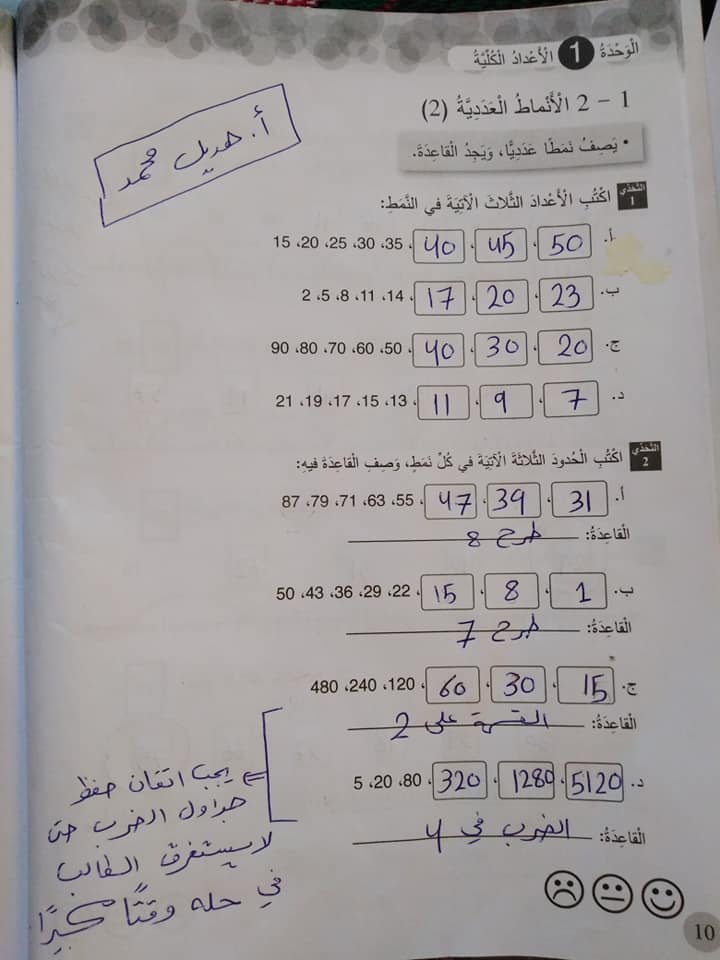 الْوَحْدَةُ 1 الْأَعْدادُ الْكُلِّيَّةُ
1 – 2 الْأَنْماطُ الْعَدَدِيَّةُ (2)
• يَصِفُ نَمَطًا عَدَدِيًّا، وَيَجِدُ الْقاعِدَةَ.
أ. هديل محمد
التَّحَدّي 1 اكْتُبِ الْأَعْدادَ الثَّلاثَ الْآتِيَةَ في النَّمَطِ:
أ. 15 ،20 ،25 ،30 ،35 ، 40 ، 45 ، 50
ب. 2 ،5 ،8 ،11 ،14 ، 17 ، 20 ، 23
ج. 90 ،80 ،70 ،60 ،50 ، 40 ، 30 ، 20
د. 21 ،19 ،17 ،15 ،13 ، 11 ، 9 ، 7
التَّحَدّي 2 اكْتُبِ الْحُدودَ الثَّلاثَةَ الْآتِيَةَ في كُلِّ نَمَطٍ، وَصِفِ الْقاعِدَةَ فيهِ:
أ. 87 ،79 ،71 ،63 ،55 ، 47 ، 39 ، 31
الْقاعِدَةُ: طرح 8
ب. 50 ،43 ،36 ،29 ،22 ، 15 ، 8 ، 1
الْقاعِدَةُ: طرح 7
ج. 480 ،240 ،120 ، 60 ، 30 ، 15
الْقاعِدَةُ: القسمة على 2
د. 5 ،20 ،80 ، 320 ، 1280 ، 5120
الْقاعِدَةُ: الضرب في 4
يجب اتقان حفظ
جداول الضرب حتى
لا يستغرق الطالب
في حله وقتًا كبيرًا
10